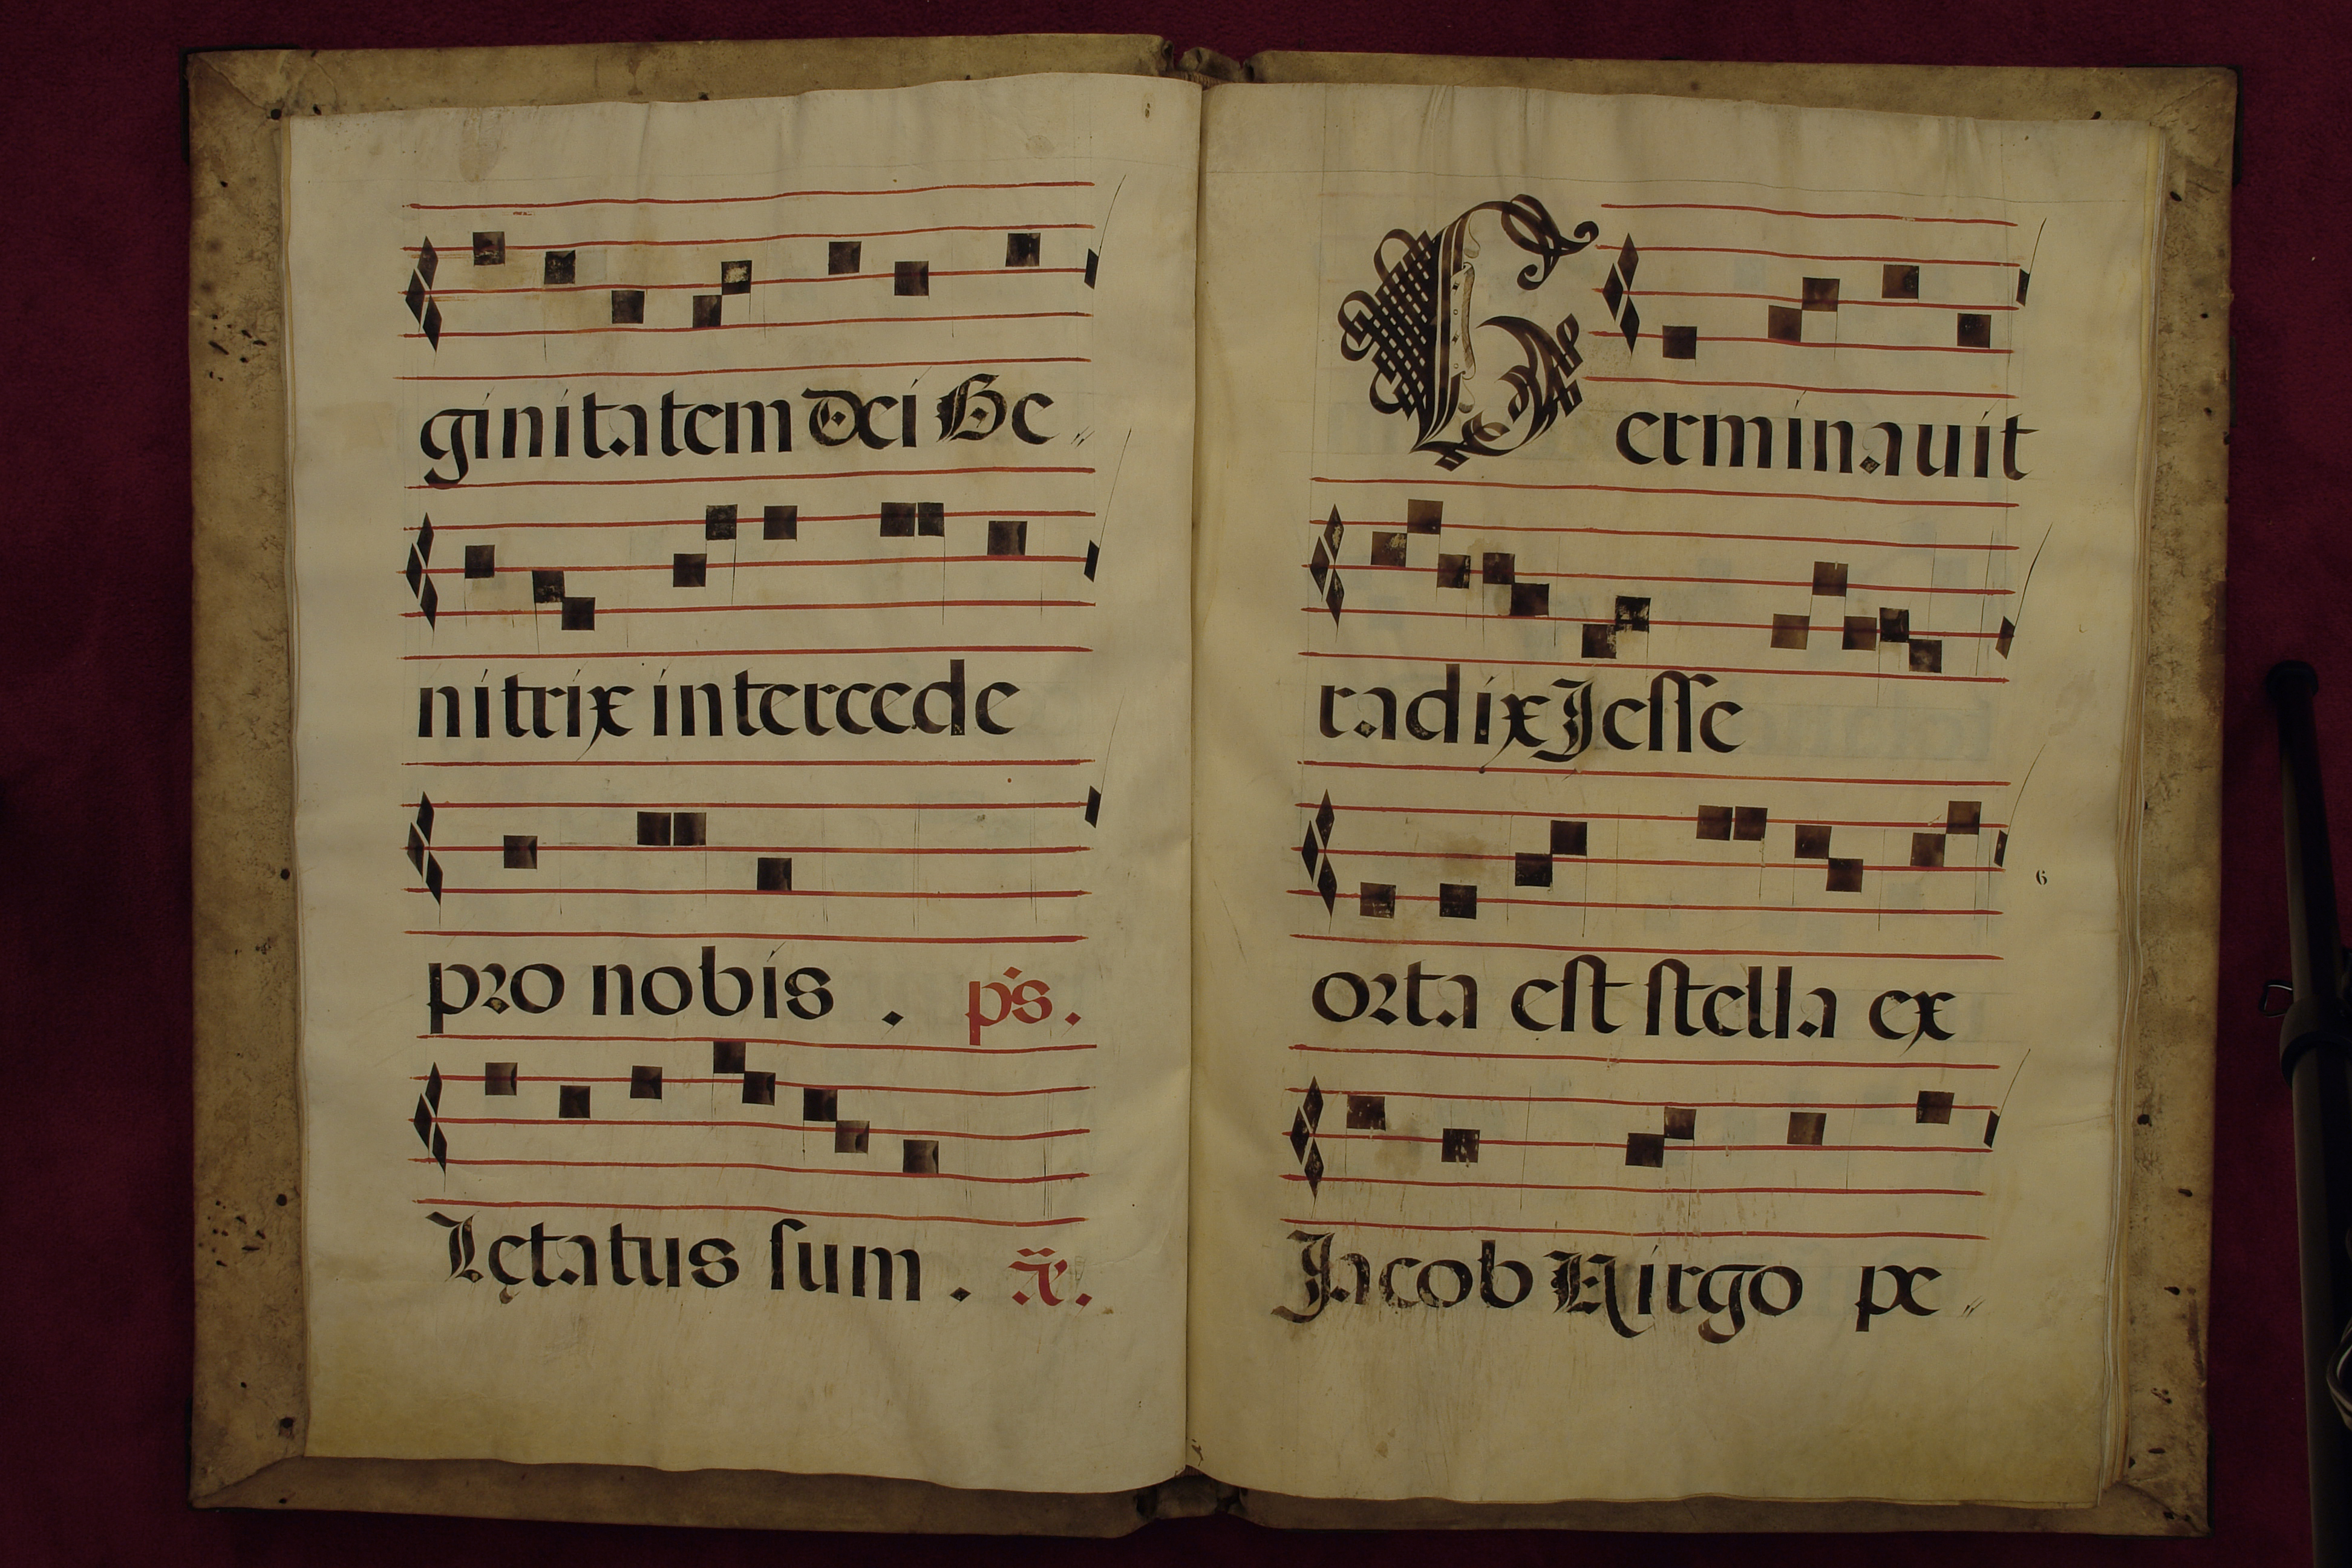 ginitatem Dei Ge
nitrix intercede
pro nobis . ps.
Lętatus sum . ã.
Germinauit
radix Jesse
6
orta est stella ex
Jacob Virgo pe